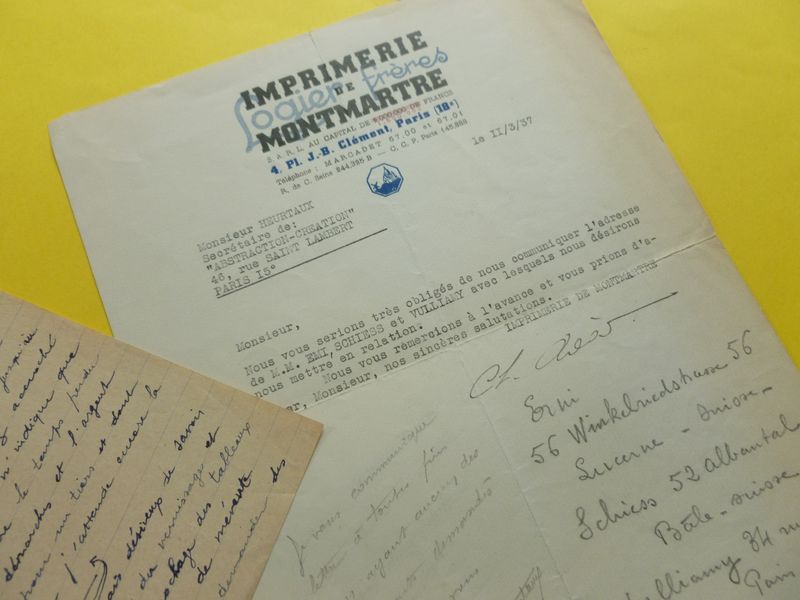 IMPRIMERIE
DE
Logier frères
MONTMARTRE
S. A. R. L. AU CAPITAL DE DE FRANCS
4, Pl. J.-B. Clément, Paris (18e)
Téléphone : MARCADET 67.00 et 67.01
R. de C. Seine 244.395 B — C. C. P. Paris 145.898
le II/3/37
Monsieur HEURTAUX
Secrétaire de:
"ABSTRACTION-CREATION"
46, rue SAINT LAMBERT
PARIS I5°
Monsieur,
Nous vous serions très obligés de nous communiquer l'adresse
de M.M. EMI, SCHIESS et VULLIAMY avec lesquels nous désirons
nous mettre en relation.
Nous vous rémercions à l'avance et vous prions d'a-
er, Monsieur, nos sincères salutations.
IMPRIMERIE DE MONTMARTRE
Erni
56 Winkelriedstrasse 56
Lucerne - Suisse -
Schiess 52 Albantal
Bâle - Suisse
ulliamy 34 rue
Paris
Je vous communique
lettre à toutes fins
ayant aucun des
demandés
accroché
n'indique que
le temps perdu
démarches et l'argent
pour un tiers et dont
j'attends encore la
désireux de savoir
du vernissage et
ochage des tableaux
de mévente
demander des